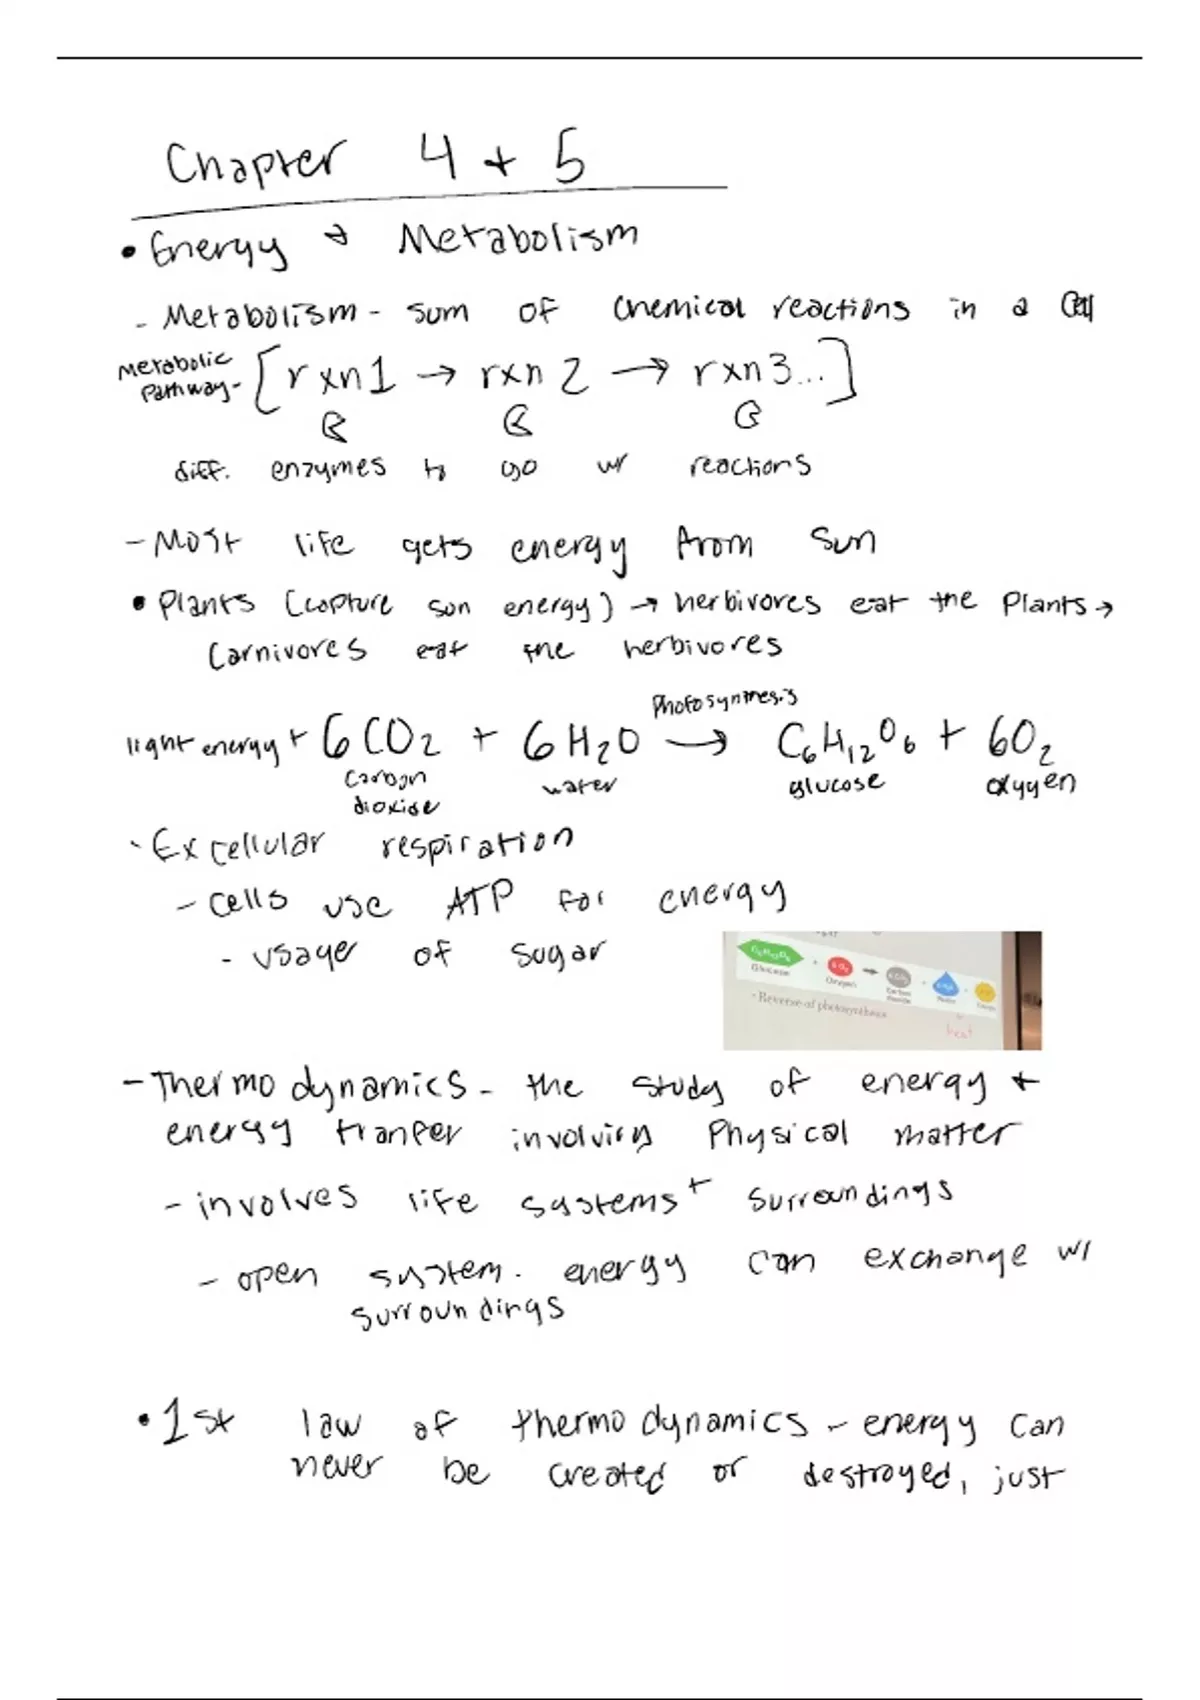 Chapter 4 + 5
• Energy + Metabolism
- Metabolism - sum of chemical reactions in a cell
Metabolic Pathway - [rxn 1 → rxn 2 → rxn 3...]
diff. enzymes to go w/ reactions
- Most life gets energy from sun
• Plants (capture sun energy) → herbivores eat the plants →
Carnivores eat the herbivores
Photosynthesis
light energy + 6CO2 + 6H2O → C6H12O6 + 6O2
carbon dioxide water glucose oxygen
· Ex cellular respiration
- cells use ATP for energy
- usage of sugar
Glucose + Oxygen → Carbon dioxide + Water +
• Reverse of photosynthesis
heat
- Thermodynamics - the study of energy +
energy tranfer involving physical matter
- involves life systems + surroundings
- open system. energy can exchange w/
surroundings
• 1st law of thermodynamics - energy can
never be created or destroyed, just